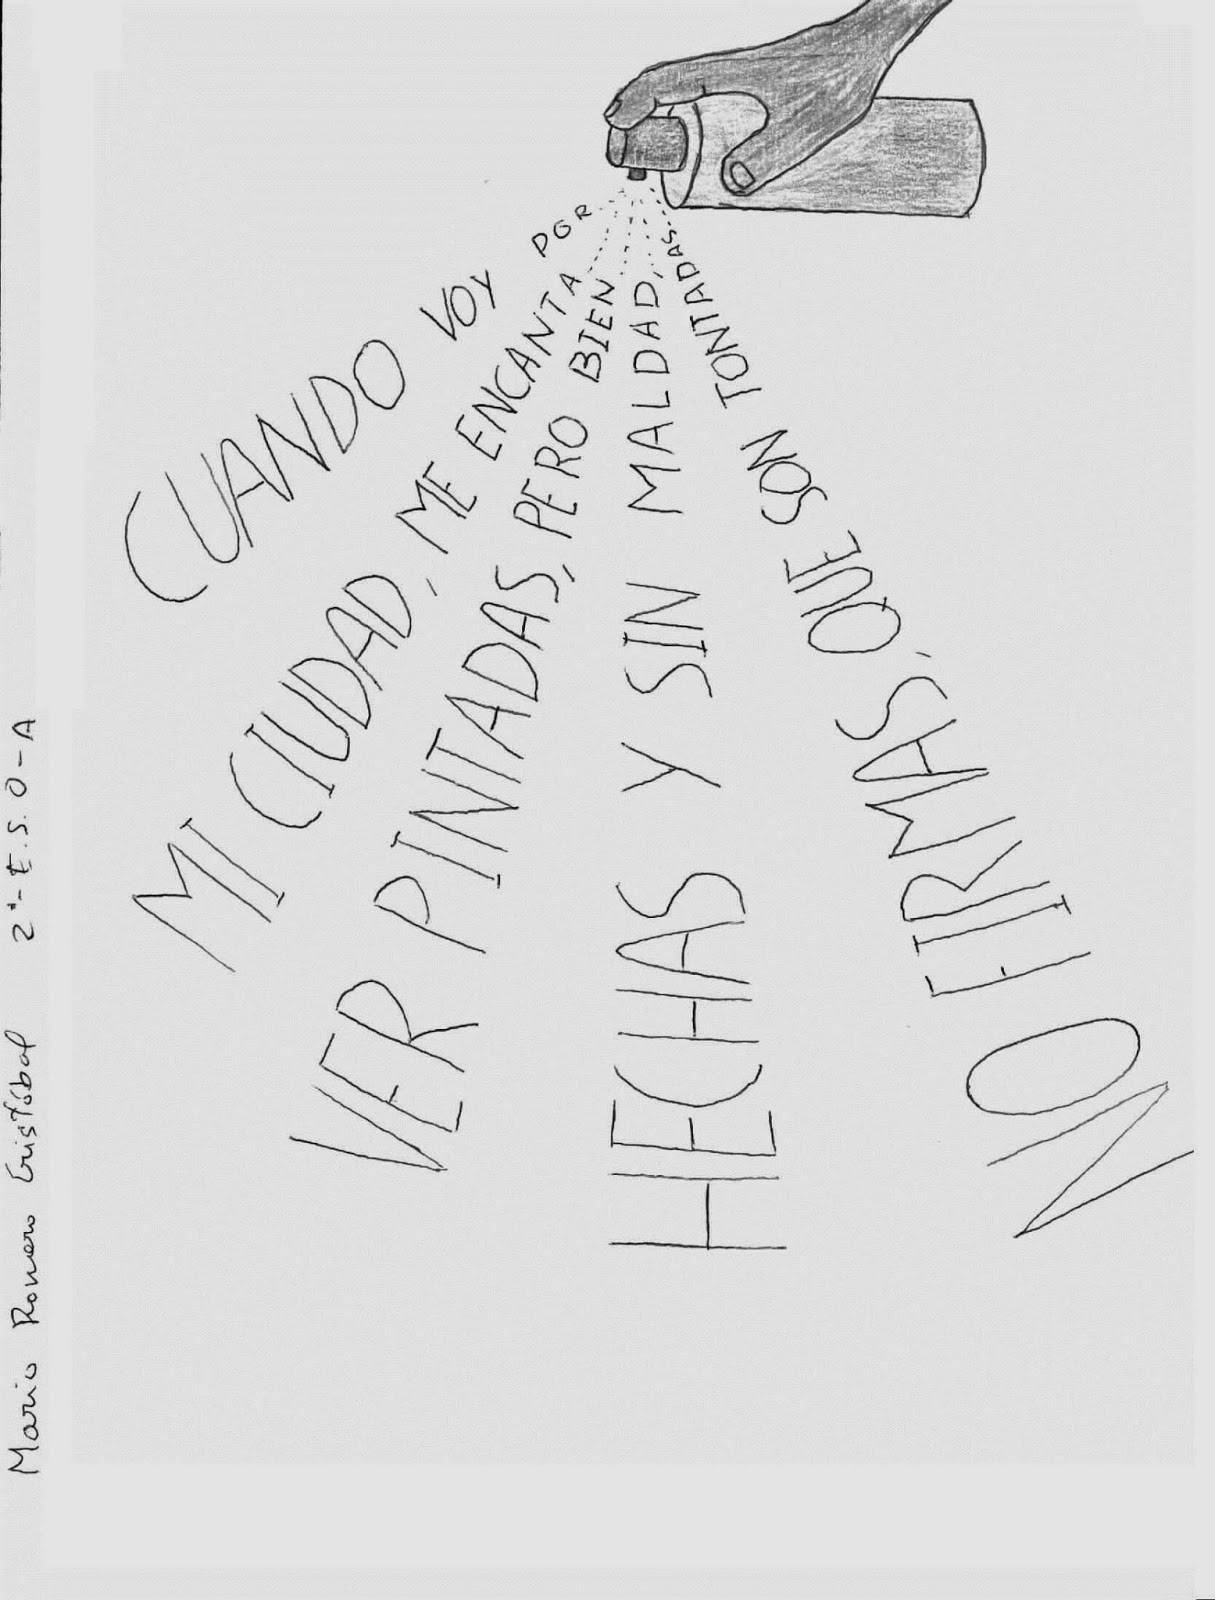 Mario Romero Cristóbal 2º-E.S.O-A
CUANDO VOY POR
MI CIUDAD, ME ENCANTA
VER PINTADAS, PERO BIEN
HECHAS Y SIN MALDAD,
NO FIRMAS, QUE SON TONTADAS